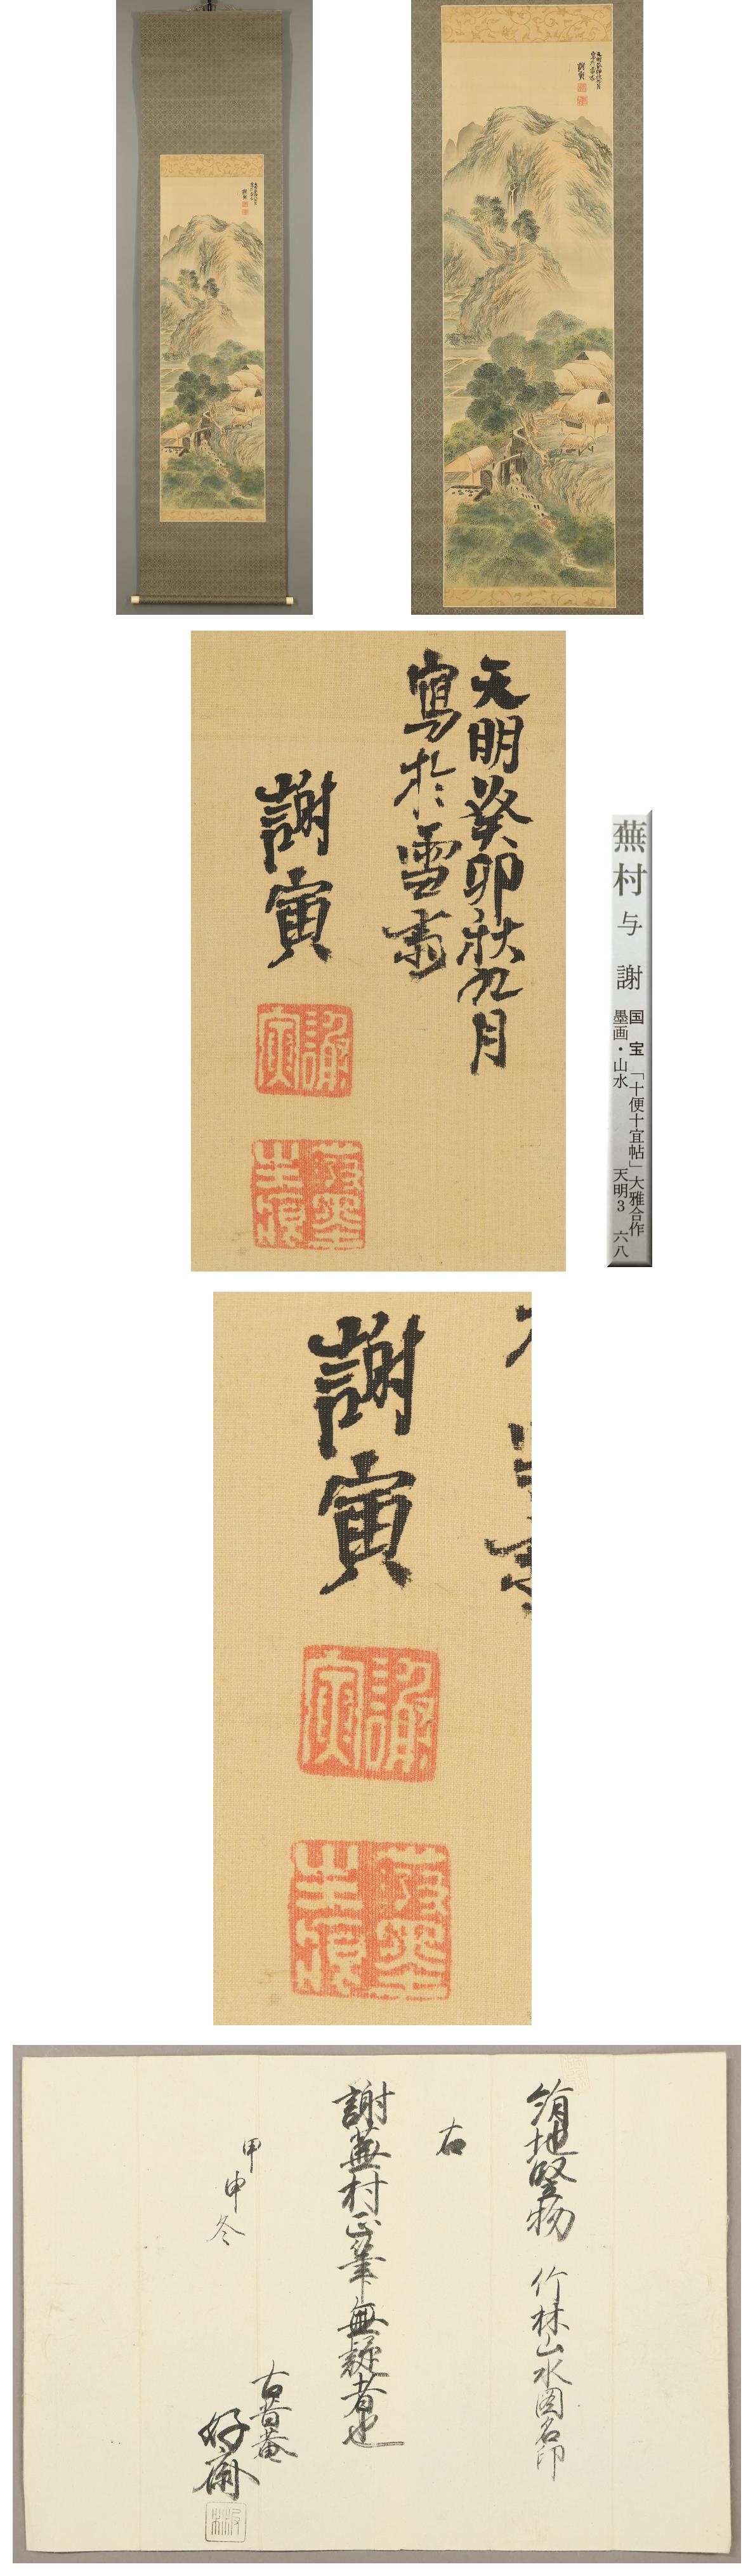 天明癸卯秋九月
寫於雪斎
謝寅
謝寅
蕪村 与 謝
国宝「十便十宜帖」大雅合作
墨画・山水 天明3 六八
謝寅
謝寅
絹地竪物 竹林山水図名印
右
謝蕪村正筆無疑者也
甲申冬
古昔菴
好斎